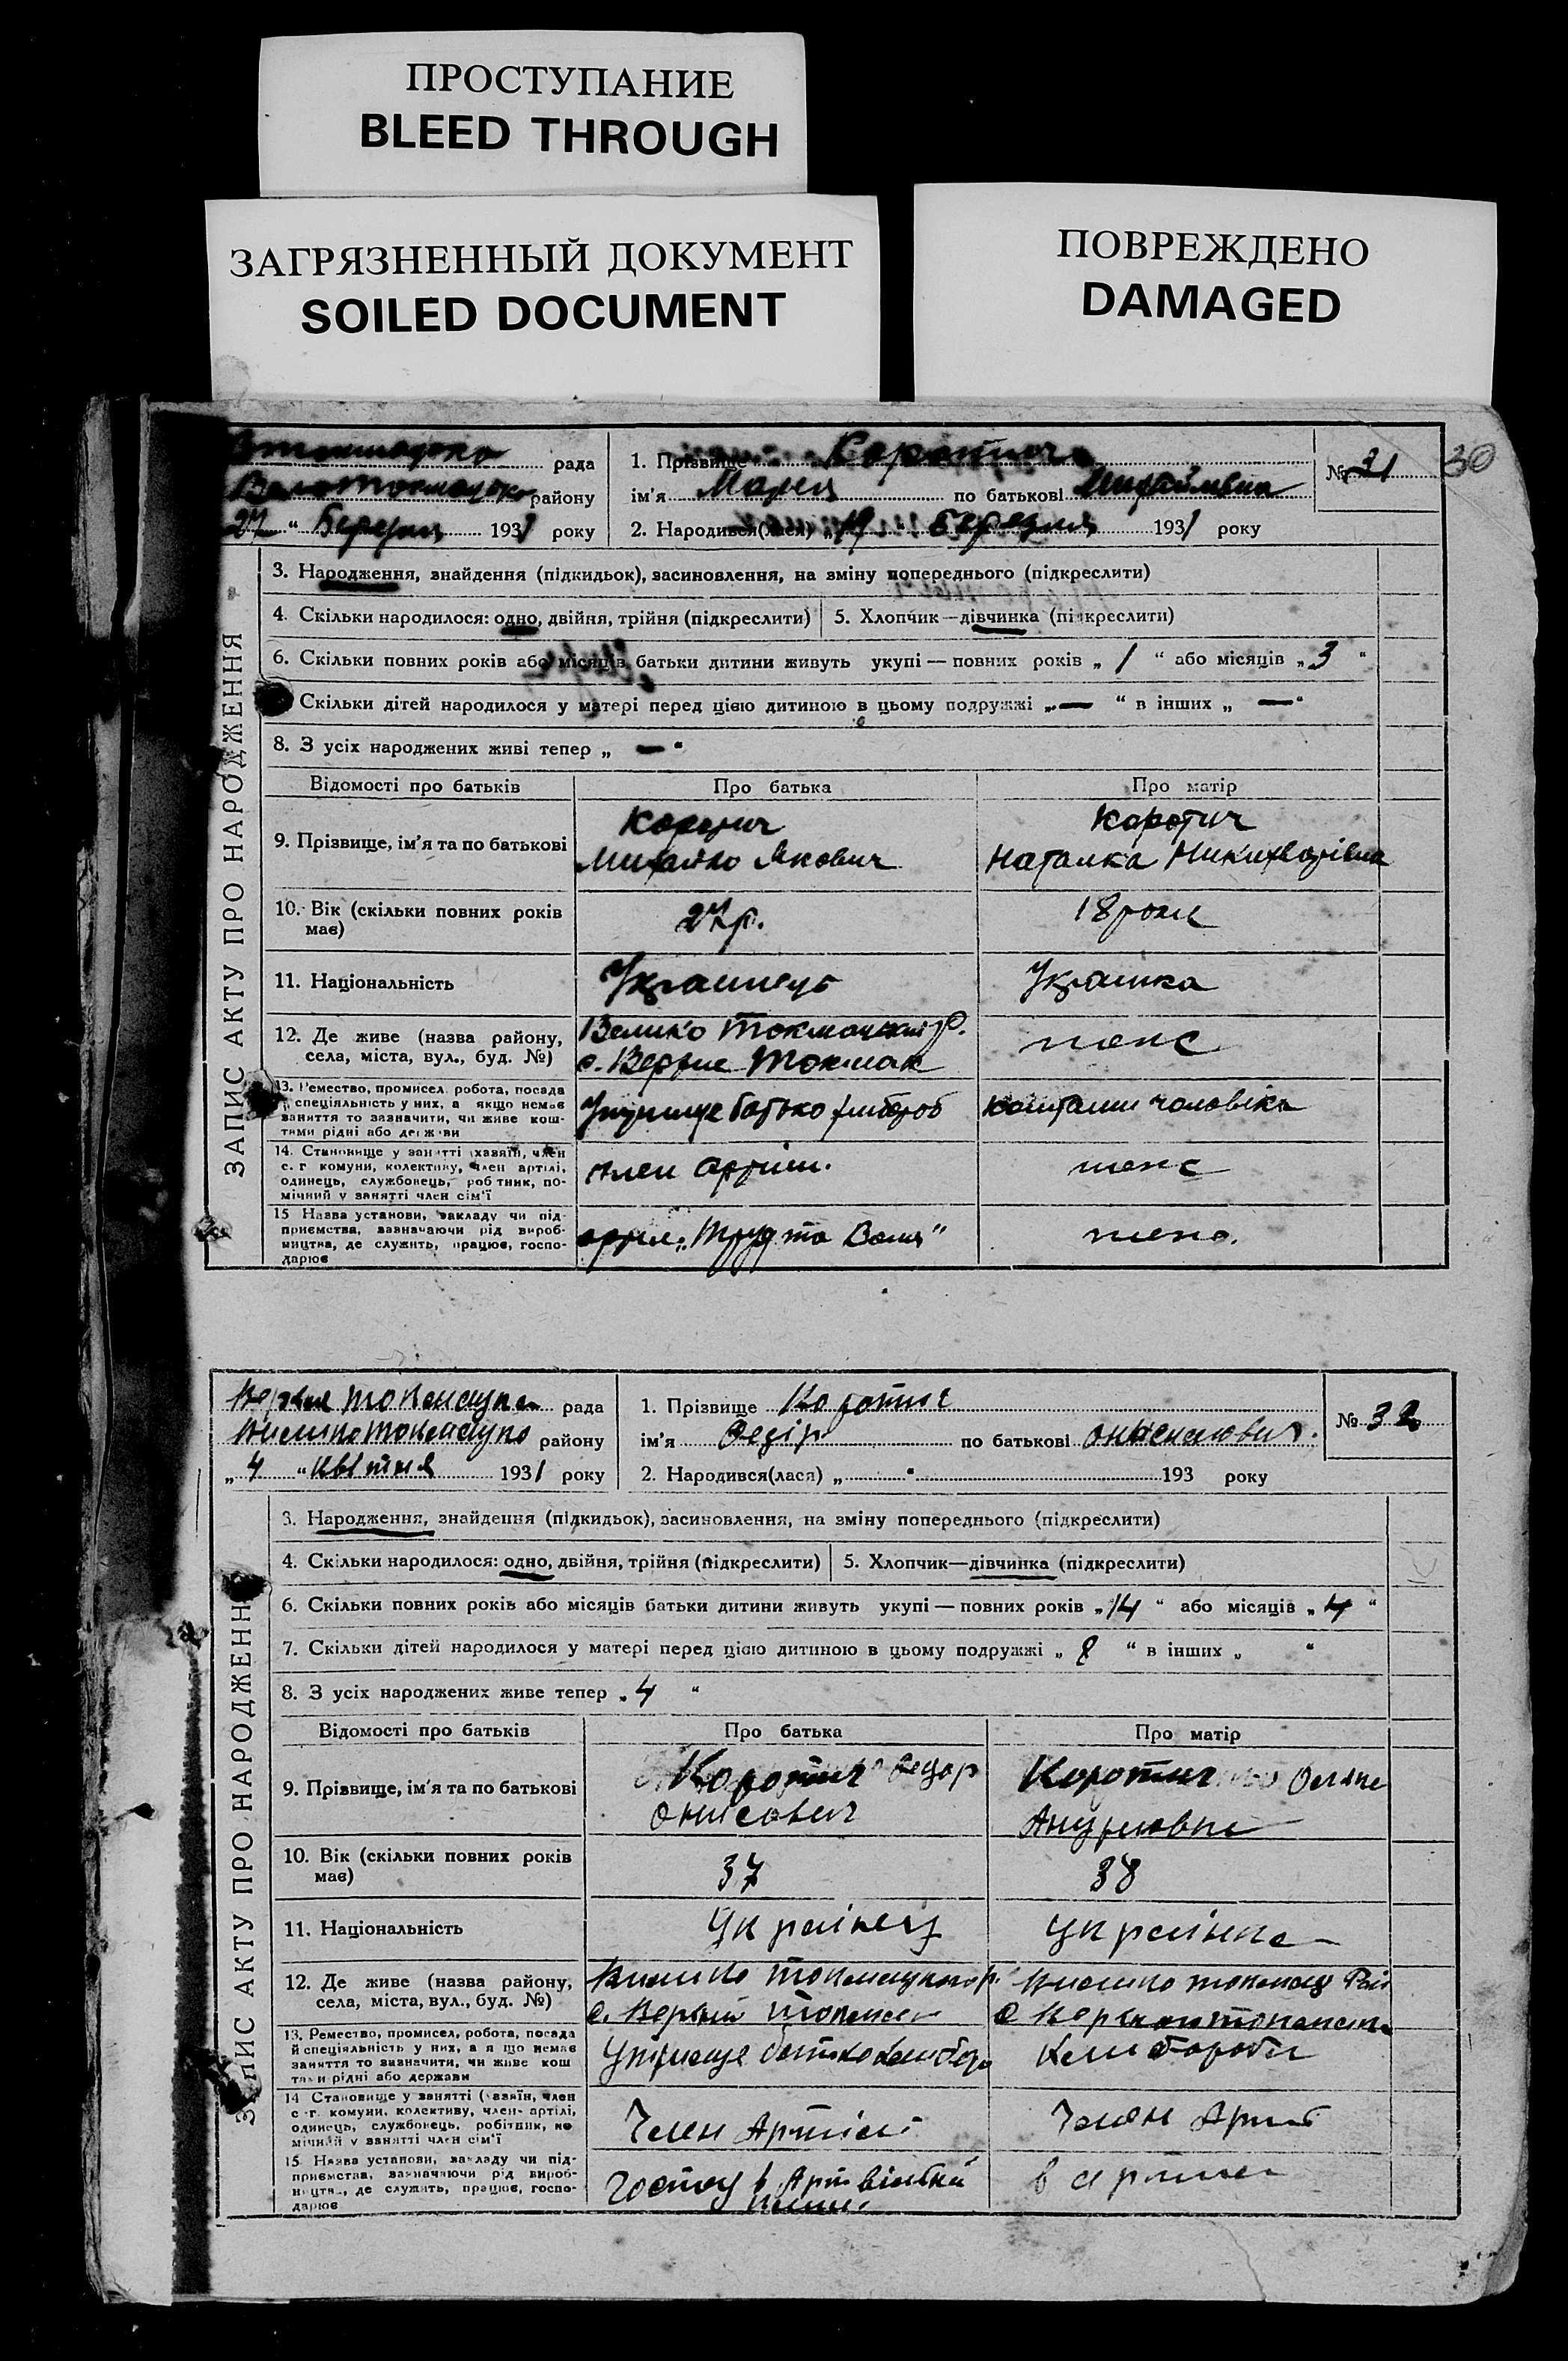 ПРОСТУПАНИЕ
BLEED THROUGH
ЗАГРЯЗНЕННЫЙ ДОКУМЕНТ
SOILED DOCUMENT
ПОВРЕЖДЕНО
DAMAGED
30
рада
району
27 " Березня 1931 року
1. Прізвище Коротич
ім'я Марія по батькові Михайлівна
2. Народився(лася) „19 " березня 1931 року
№ 31
ЗАПИС АКТУ ПРО НАРОДЖЕННЯ
3. Народження, знайдення (підкидьок), засиновлення, на зміну попереднього (підкреслити)
4. Скільки народилося: одно, двійня, трійня (підкреслити)
5. Хлопчик—дівчинка (підкреслити)
6. Скільки повних років або місяців батьки дитини живуть укупі — повних років „ 1 “ або місяців „ 3 “
Скільки дітей народилося у матері перед цією дитиною в цьому подружжі „ — “ в інших „ — “
8. З усіх народжених живі тепер „ — “
Відомості про батьків Про батька Про матір
9. Прізвище, ім'я та по батькові
Коротич
Михайло Якович
Коротич
Наталка
10. Вік (скільки повних років має)
27 р.
18 роки
11. Національність
Українець
Українка
12. Де живе (назва району, села, міста, вул., буд. №)
Велико Токмацький р.
с. Верхне Токмак
тоже
13. Ремество, промисел, робота, посада й спеціяльність у них, а якщо немає заняття то зазначити, чи живе коштами рідні або держави
Утримує батько хлібороб
коштами чоловіка
14. Становище у занятті (хазяїн, член с.-г. комуни, колективу, член артілі, одинець, службовець, робітник, помічний у занятті член сім'ї
член артіли.
тоже
15 Назва установи, закладу чи підприємства, зазначаючи рід виробництва, де служить, працює, господарює
артил. „Труд та Воля"
тоже.
рада
району
„ 4 " квітня 1931 року
1. Прізвище Коротич
ім'я Федір по батькові
2. Народився(лася) „ “ 193 року
№ 32
ЗАПИС АКТУ ПРО НАРОДЖЕННЯ
3. Народження, знайдення (підкидьок), засиновлення, на зміну попереднього (підкреслити)
4. Скільки народилося: одно, двійня, трійня (підкреслити)
5. Хлопчик—дівчинка (підкреслити)
6. Скільки повних років або місяців батьки дитини живуть укупі — повних років „ 14 “ або місяців „ 4 “
7. Скільки дітей народилося у матері перед цією дитиною в цьому подружжі „ 8 “ в інших „ “
8. З усіх народжених живе тепер „ 4 “
Відомості про батьків Про батька Про матір
9. Прізвище, ім'я та по батькові
Коротич Федор
Онисович
Коротич
10. Вік (скільки повних років має)
37
38
11. Національність
Українец
Українка
12. Де живе (назва району, села, міста, вул., буд. №)
13. Ремество, промисел, робота, посада й спеціяльність у них, а якщо немає заняття то визначити, чи живе коштами рідні або держави
Утримує батько
14 Становище у занятті (хазяїн, член с.-г. комуни, колективу, член артілі, одинець, службовець, робітник, помічний у занятті член сім'ї
Член Артілі
Член Арт
15. Назва установи, закладу чи підприємства, зазначаючи рід виробництва, де служить, працює, господарює
в артілі